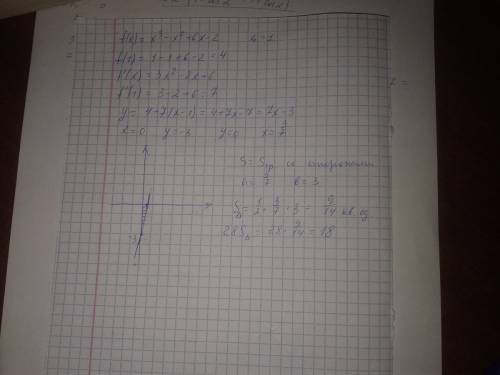 f(x) = x³ - x² + 6x - 2    x₀ = 1
f(1) = 1 - 1 + 6 - 2 = 4
f'(x) = 3x² - 2x + 6
f'(1) = 3 - 2 + 6 = 7
y = 4 + 7(x - 1) = 4 + 7x - 7 = 7x - 3
x = 0    y = -3    y = 0    x = 3/7
S = Sтр со сторонами
a = 3/7    b = 3
-3
S = 1/2 · 3/7 · 3 = 9/14 кв. ед
28S = 28 · 9/14 = 18